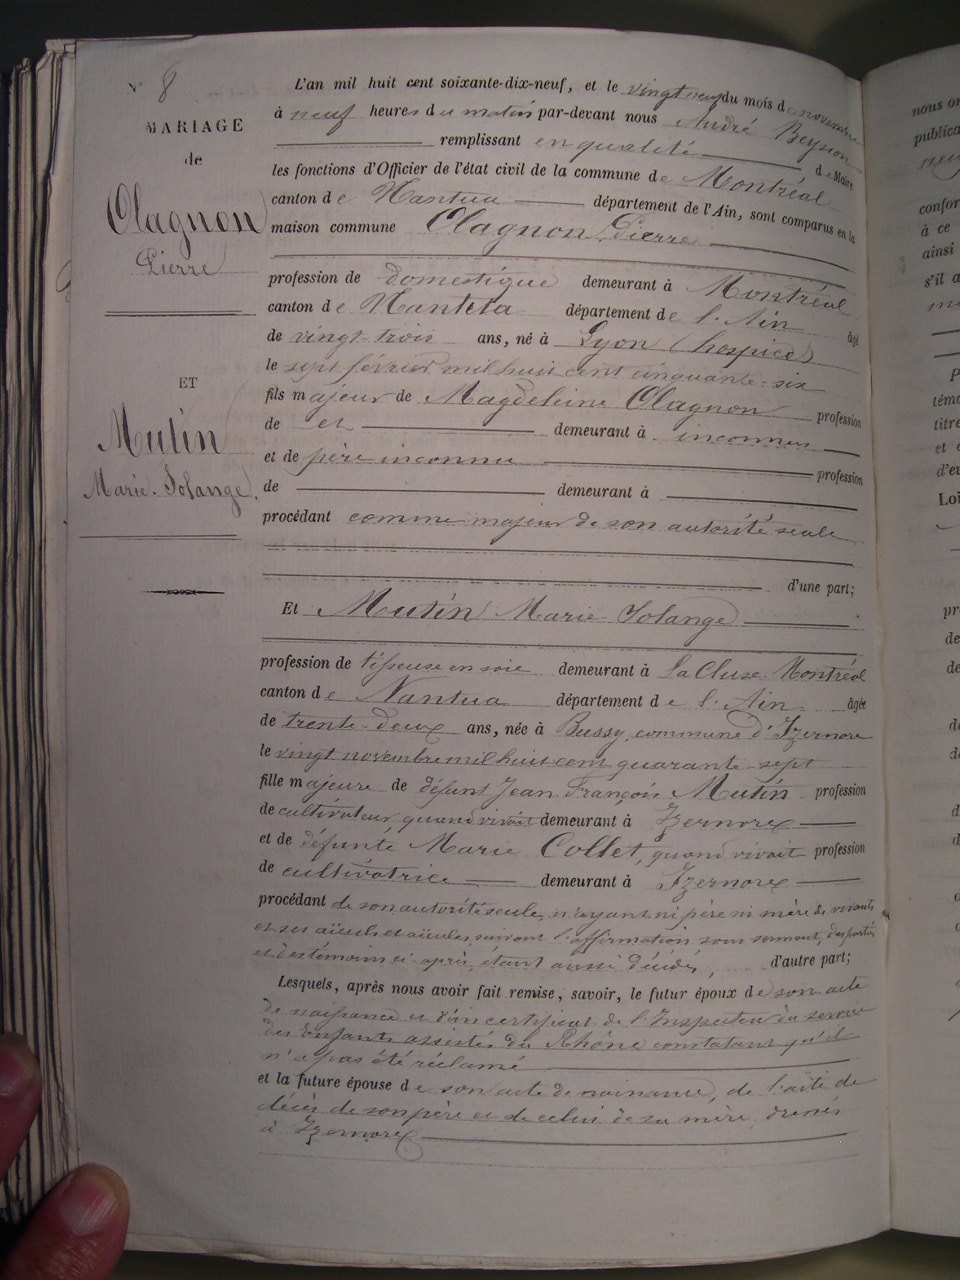 N° 8
MARIAGE
de
Olagnon
Pierre
ET
Mutin
Marie-Solange.
L'an mil huit cent soixante-dix-neuf, et le vingt neuf du mois de novembre
à neuf heures du matin par-devant nous André Beysson
remplissant en qualité de Maire
les fonctions d'Officier de l'état civil de la commune de Montréal
canton de Nantua département de l'Ain, sont comparus en la
maison commune Olagnon Pierre
profession de domestique demeurant à Montréal
canton de Nantua département de l'Ain âgé
de vingt-trois ans, né à Lyon (hospice)
le sept février mil huit cent cinquante-six
fils majeur de Magdeleine Olagnon profession
de et demeurant à inconnus
et de père inconnu profession
de demeurant à
procédant comme majeur de son autorité seule
d'une part;
Et Mutin Marie-Solange
profession de tisseuse en soie demeurant à La Cluse-Montréal
canton de Nantua département de l'Ain âgée
de trente-deux ans, née à Bussy, commune d'Izernore
le vingt novembre mil huit cent quarante-sept
fille majeure de défunt Jean François Mutin profession
de cultivateur quand vivait demeurant à Izernore
et de défunte Marie Collet, quand vivait profession
de cultivatrice demeurant à Izernore
procédant de son autorité seule, n'ayant ni père ni mère de vivants
et ses aïeuls et aïeules, suivant l'affirmation sous serment, des parties
et des témoins ci-après, étant aussi décédés, d'autre part;
Lesquels, après nous avoir fait remise, savoir, le futur époux de son acte
de naissance et d'un certificat de l'Inspecteur du service
des Enfants assistés du Rhône constatant qu'il
n'a pas été réclamé
et la future épouse de son acte de naissance, de l'acte de
décès de son père et de celui de sa mère, dressés
à Izernore